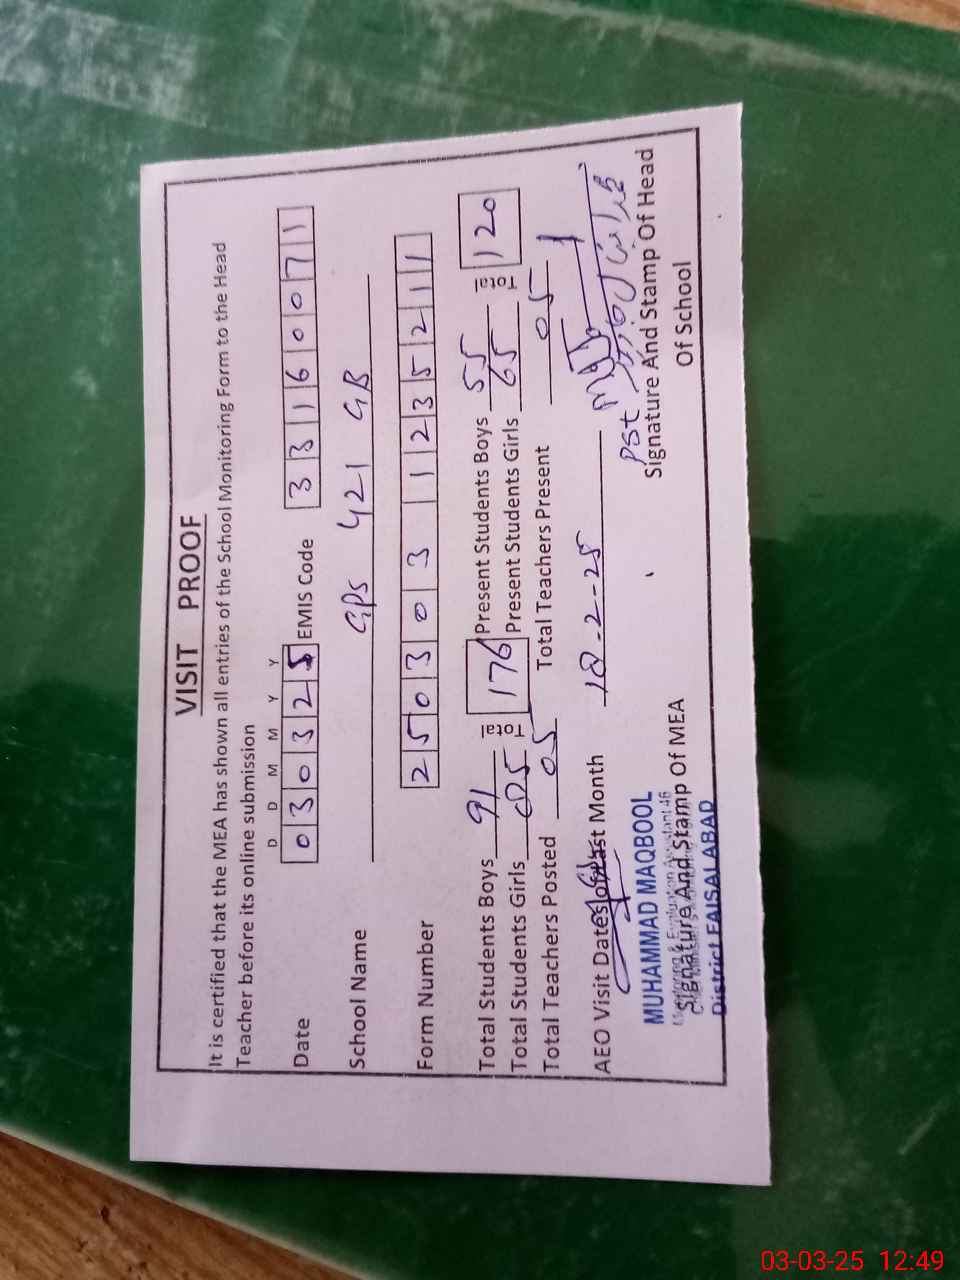 VISIT PROOF
It is certified that the MEA has shown all entries of the School Monitoring Form to the Head
Teacher before its online submission
D D M M Y Y
Date 030325 EMIS Code 33160071
School Name GPS 421 GB
Form Number 2503031235211
Total Students Boys 91 Total 176 Present Students Boys 55 Total 120
Total Students Girls 85 Present Students Girls 65
Total Teachers Posted 05 Total Teachers Present 05
AEO Visit Dates of Last Month 18-2-25
MUHAMMAD MAQBOOL
Monitoring & Evaluation Assistant 46
Signature And Stamp Of MEA
District FAISALABAD
PST
Signature And Stamp Of Head
Of School
03-03-25 12:49